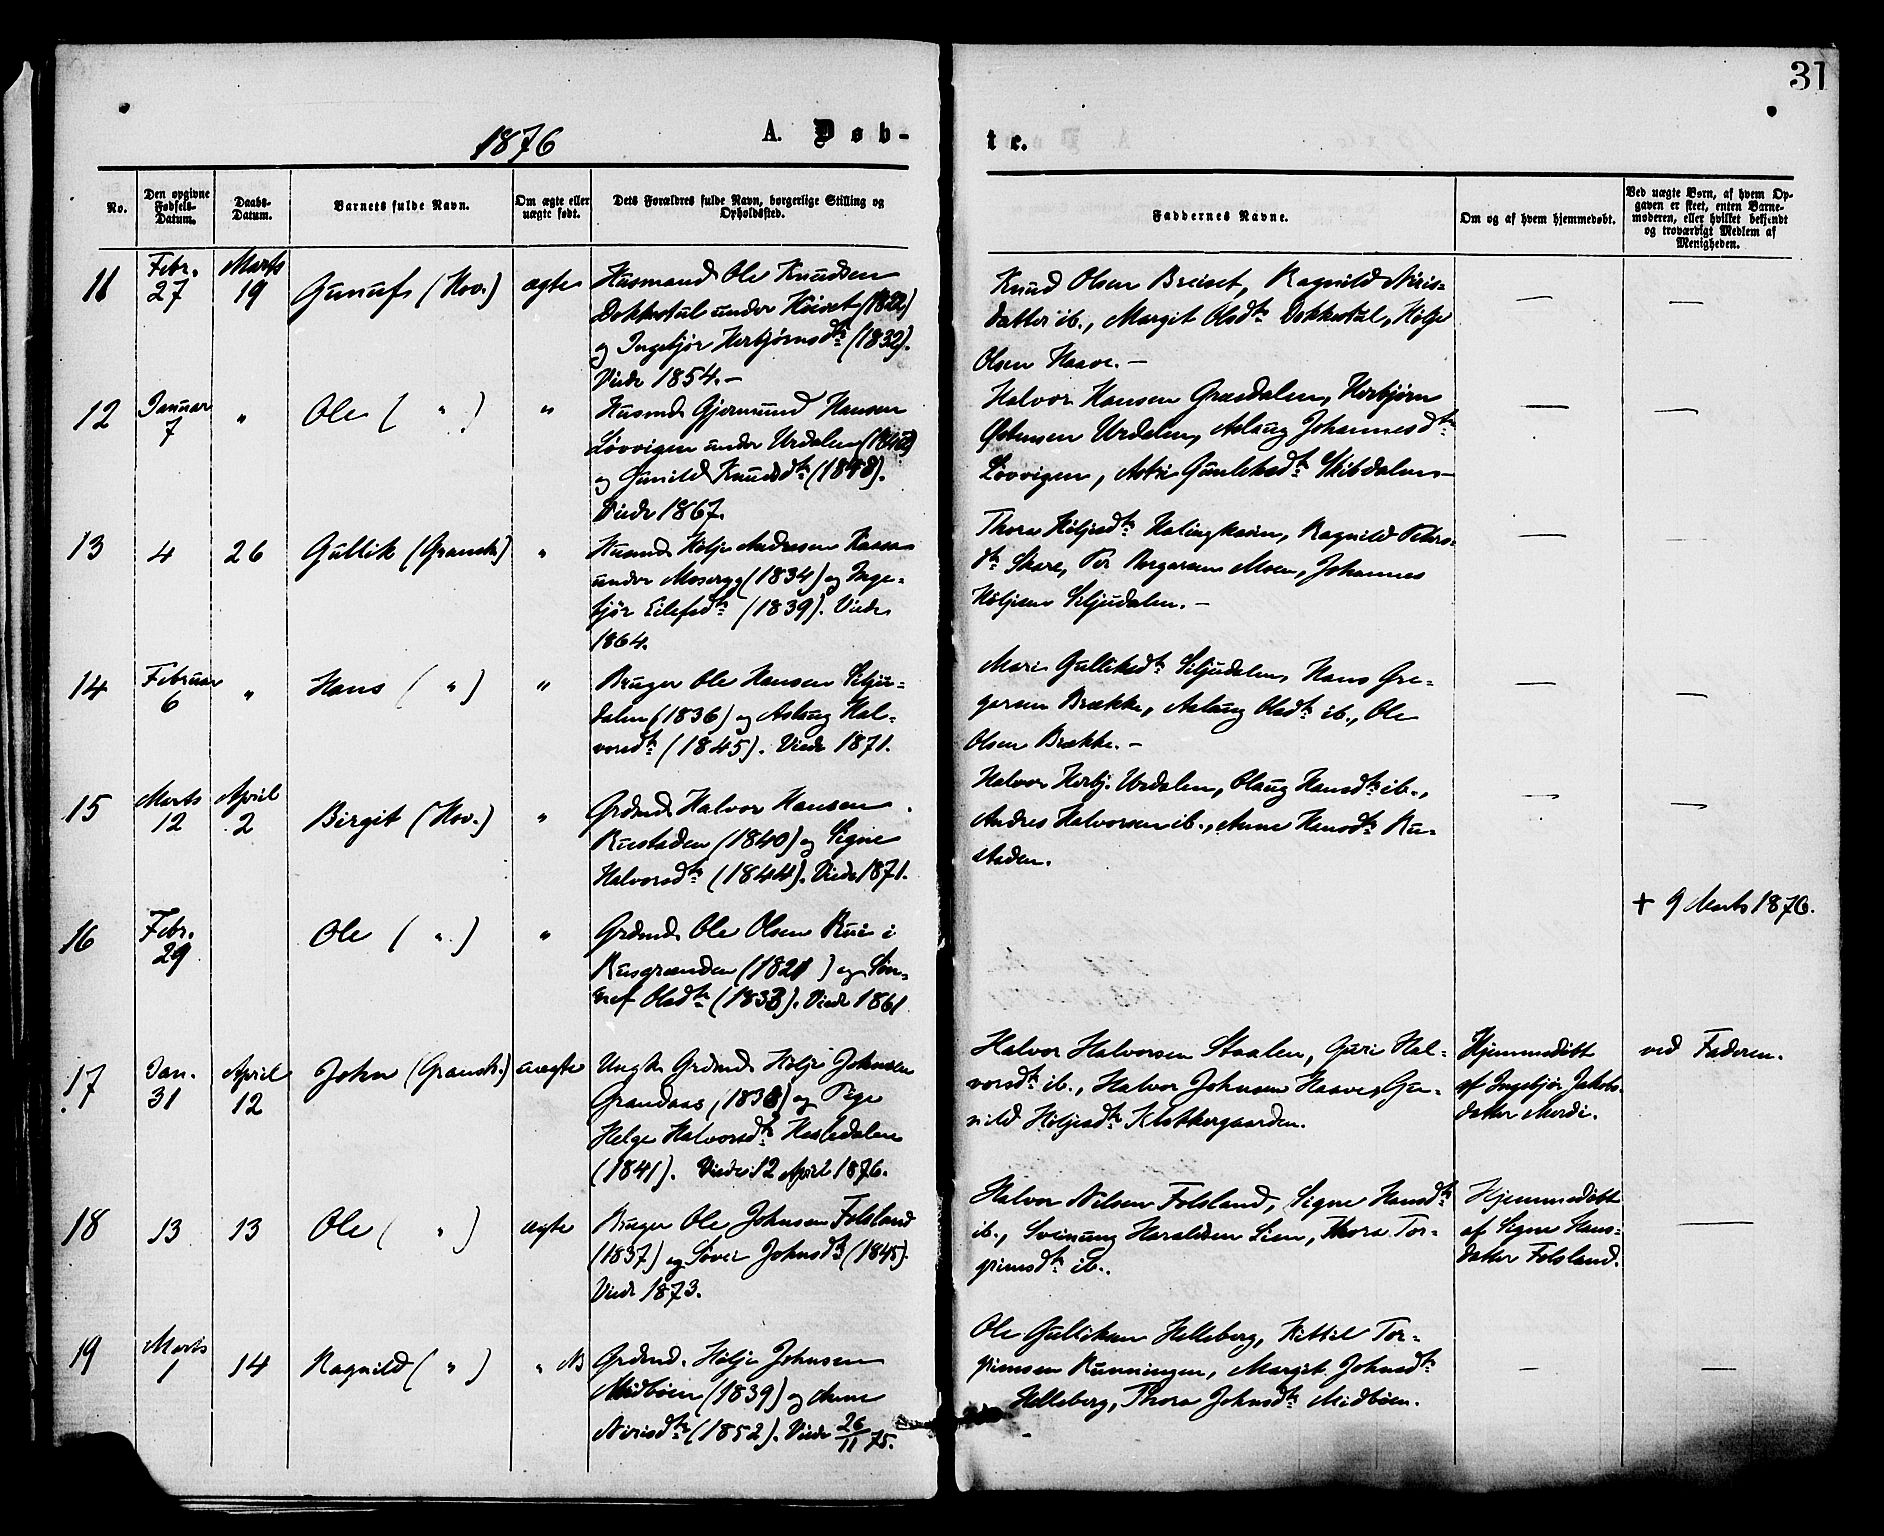 31
1876 A. Døb-
te.
No.
Den opgivne Fødsels-Datum.
Daabs-Datum.
Barnets fulde Navn.
Om ægte eller uægte født.
Dets Forældres fulde Navn, borgerlige Stilling og Opholdssted.
Faddernes Navne.
Om og af hvem hjemmedøbt.
Ved uægte Børn, af hvem Opgaven er skeet, enten Barnemoderen, eller hvilket bekjendt og troværdigt Medlem af Menigheden.
11 Febr. 27 Marts 19 Gunuf (Hov.) ægte
Husmand Ole Knudsen
Dokkestul under Høiset (1822)
og Ingebjør Herbjørnsdtr (1832).
Viede 1854.-
Knud Olsen Breiset, Ragnild Niris-
datter ib., Margit Olsdtr Dokkestul, Hølje
Olsen Haave.-
— —
12 Januar 7 " Ole ( " ) "
Husmd. Gjermund Hansen
Løvvigen under Urdalen
og Gunild Knudsdtr (1848).
Viede 1867.
Halvor Hansen Græsdalen, Herbjørn
Østensen Urdalen, Aslaug Johannesdtr
Løvvigen, Astri Gunleksdtr Skibdalen-
— —
13 4 26 Gullik (Gransh.) "
Husmd. Hølje Andresen Kaasa
under Moserygg (1834) og Inge-
bjør Eilefsdtr (1839). Viede
1864.
Thore Høljesdtr Ragnild Peters-
dtr Skare, Per Moen, Johannes
Høljesen Siljudalen.-
— —
14 Februar 6 " Hans ( " ) "
Bruger Ole Hansen Silju-
dalen (1836) og Aslaug Hal-
vorsdtr (1845). Viede 1871.
Mari Gulliksdtr Siljudalen, Hans Gre-
gersen Brække, Aslaug Olsdtr ib., Ole
Olsen Brække.-
— —
15 Marts 12 April 2 Birgit (Hov.) "
Grdmd. Halvor Hansen
Rustaden (1840) og Signe
Halvorsdtr (1844). Viede 1871.
Halvor Herbj. Urdalen, Olaug Hansdtr ib.,
Andres Halvorsen ib., Anne Hansdtr Ru-
staden.
— —
16 Febr. 29 Ole ( " ) "
Grdmd. Ole Olsen Rui i
Rusgrænden (1821) og Søn-
nef Olsdtr (1833). Viede 1861
+ 9 Marts 1876.
17 Jan. 31 April 12 John (Gransh.) uægte
Ungk. Grdmd. Hølje Johnsen
Grandaas (1838) og Pige
Helge Halvorsdtr Hasledalen
(1841). Viede 12 April 1876.
Halvor Halvorsen Staalen, Guri Hal-
vorsdtr ib., Halvor Johnsen Haave, Gu-
nild Høljesdtr Klokkergaarden.
Hjemmedøbt
af Ingebjør Jakobs-
datter Merdi.
ved Faderen.
18 13 13 Ole ( " ) ægte
Bruger Ole Johnsen Folsland
(1837) og Søvei Johnsdtr (1845).
Viede 1873.
Halvor Nilsen Folsland, Signe Hansdtr
ib., Svinung Haraldsen Lien, Thore Tor-
grimsdtr ib.
Hjemmedøbt
af Signe Hans-
datter Folsland.
—
19 Marts 1 14 Ragnild ( " ) " NB
Grdmd. Hølje Johnsen
Midbøen (1839) og Anne
Nirisdtr (1852). Viede 26/11 75.
Ole Gulliksen Helleberg, Kittil Tor-
grimsen Runningen, Margit Johnsdtr
Helleberg, Thora Johnsdtr Midbøen.
— —